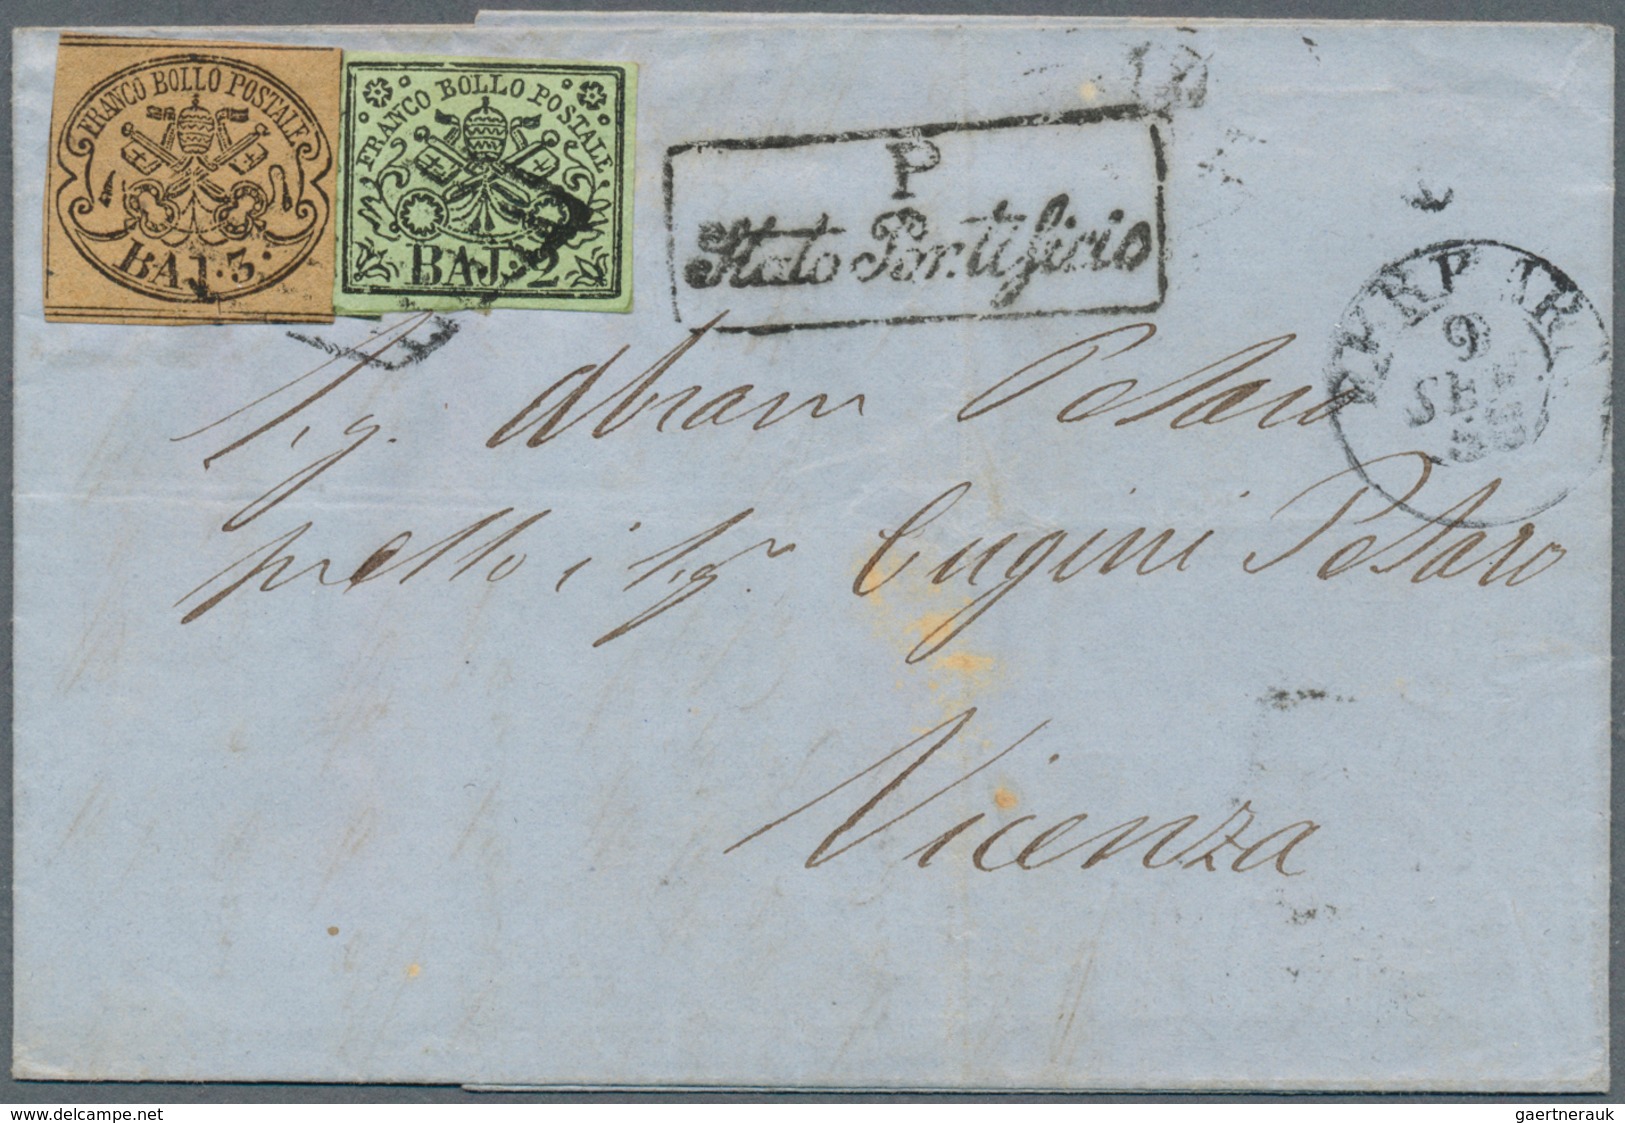 FRANCO BOLLO POSTALE
BAJ. 3.
FRANCO BOLLO POSTALE
BAJ. 2
P
Stato Pontificio
9
SET
Sig. Abram Pesaro
presso i Sigri Eugini Pesaro
Vicenza
www.delcampe.net
gaertnerauk